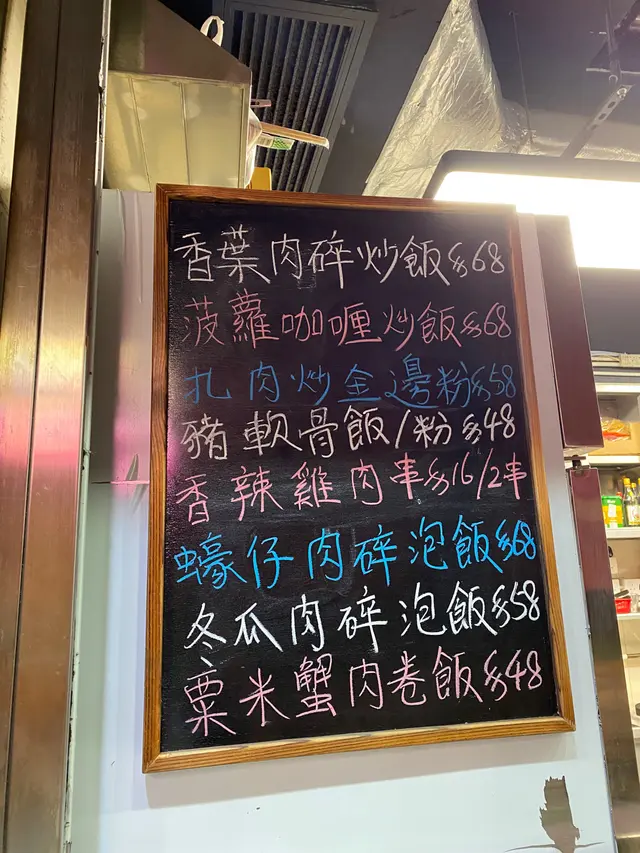 香葉肉碎炒飯$68
菠蘿咖喱炒飯$68
扎肉炒金邊粉$58
豬軟骨飯/粉$48
香辣雞肉串$16/2串
蠔仔肉碎泡飯$68
冬瓜肉碎泡飯$58
粟米蟹肉卷飯$48